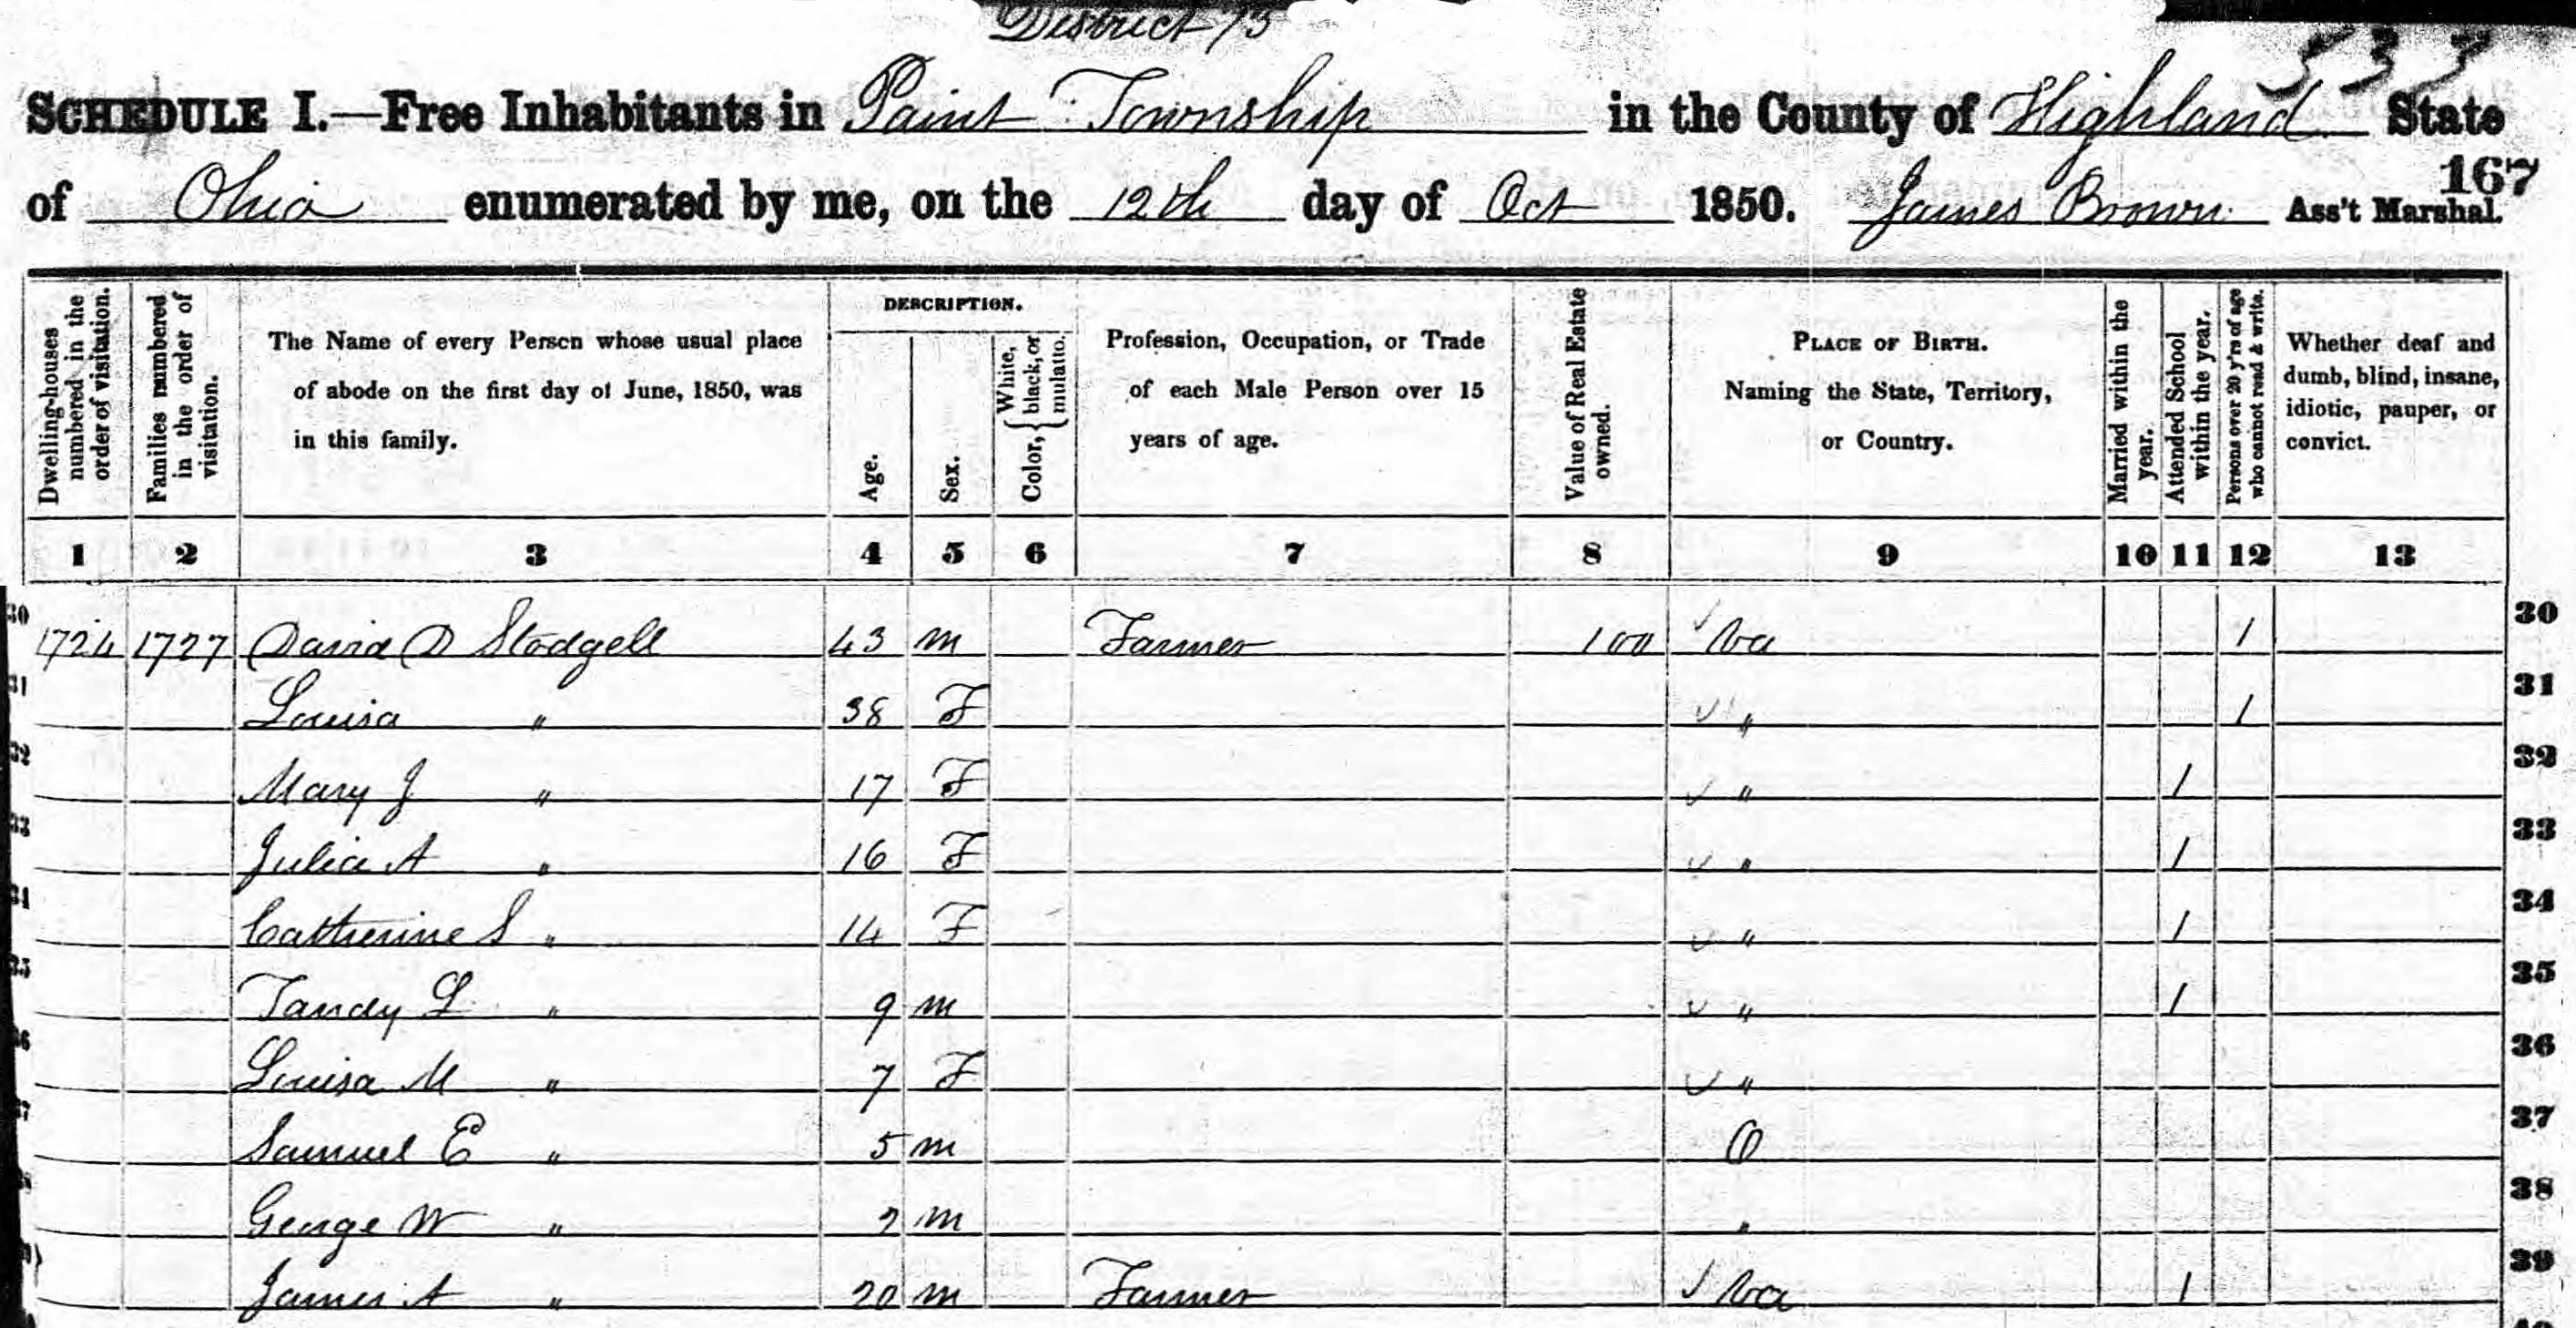 District 75
533
SCHEDULE I.—Free Inhabitants in Paint Township in the County of Highland State
167
of Ohio enumerated by me, on the 12th day of Oct 1850. James Brown Ass't Marshal.
Dwelling-houses numbered in the order of visitation.
Families numbered in the order of visitation.
The Name of every Person whose usual place
of abode on the first day of June, 1850, was
in this family.
DESCRIPTION.
Age.
Sex.
Color, { White, black, or mulatto.
Profession, Occupation, or Trade
of each Male Person over 15
years of age.
Value of Real Estate owned.
PLACE OF BIRTH.
Naming the State, Territory,
or Country.
Married within the year.
Attended School within the year.
Persons over 20 y'rs of age who cannot read & write.
Whether deaf and
dumb, blind, insane,
idiotic, pauper, or
convict.
1 2 3 4 5 6 7 8 9 10 11 12 13
30 1724 1727 David D Stodgell 43 m Farmer 100 Va 1 30
31 Louisa " 38 F " 1 31
32 Mary J " 17 F " 1 32
33 Julia A " 16 F " 1 33
34 Catherine S " 14 F " 1 34
35 Tandy L " 9 m " 1 35
36 Louisa M " 7 F " 36
37 Samuel E " 5 m O 37
38 George W " 2 m " 38
39 James A " 20 m Farmer Va 1 39